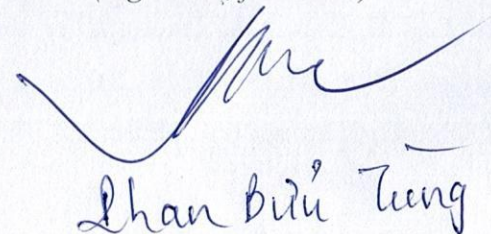 Phan Bửu Tùng